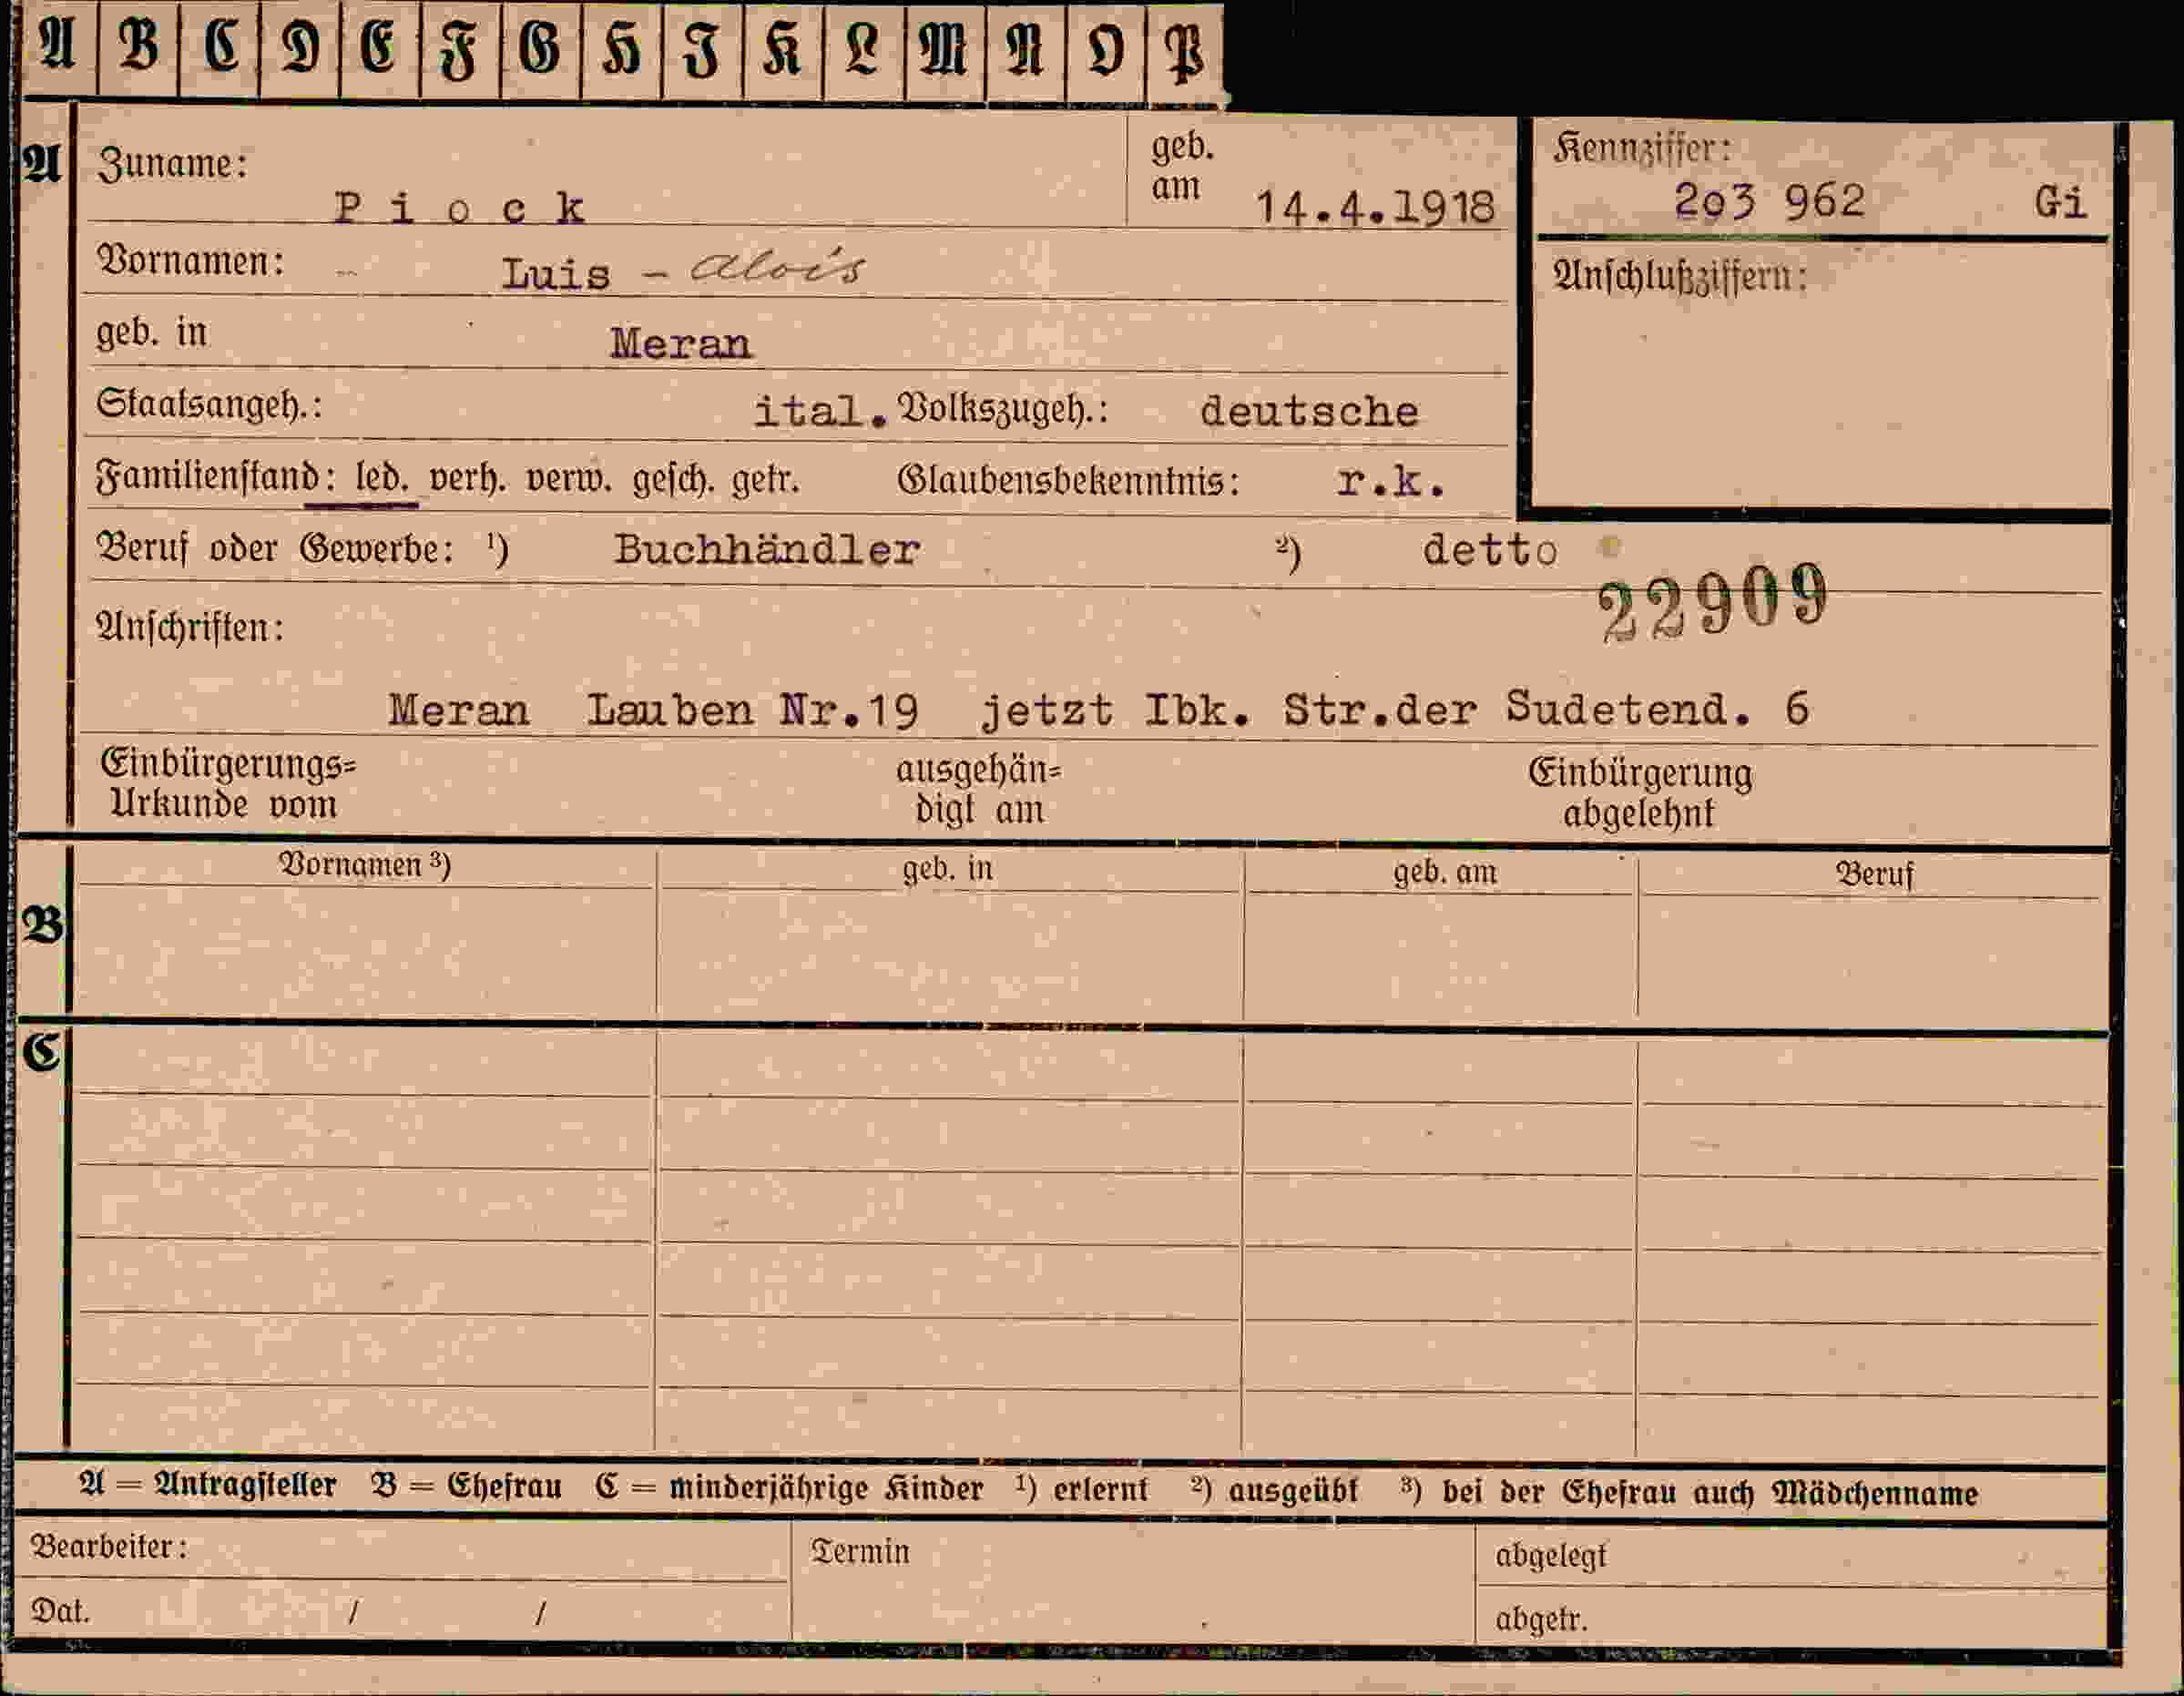 A B C D E F G H I K L M N O P
A Zuname: P i o c k geb. am 14.4.1918
Kennziffer: 2o3 962 Gi
Vornamen: Luis - Alois
Anschlußziffern:
geb. in Meran
Staatsangeh.: ital. Volkszugeh.: deutsche
Familienstand: led. verh. verw. gesch. getr. Glaubensbekenntnis: r.k.
Beruf oder Gewerbe: ¹) Buchhändler ²) detto
22909
Anschriften:
Meran Lauben Nr.19 jetzt Ibk. Str.der Sudetend. 6
Einbürgerungs= ausgehän= Einbürgerung
Urkunde vom digt am abgelehnt
Vornamen ³) geb. in geb. am Beruf
B
C
A = Antragsteller B = Ehefrau C = minderjährige Kinder ¹) erlernt ²) ausgeübt ³) bei der Ehefrau auch Mädchenname
Bearbeiter: Termin abgelegt
Dat. / / abgetr.